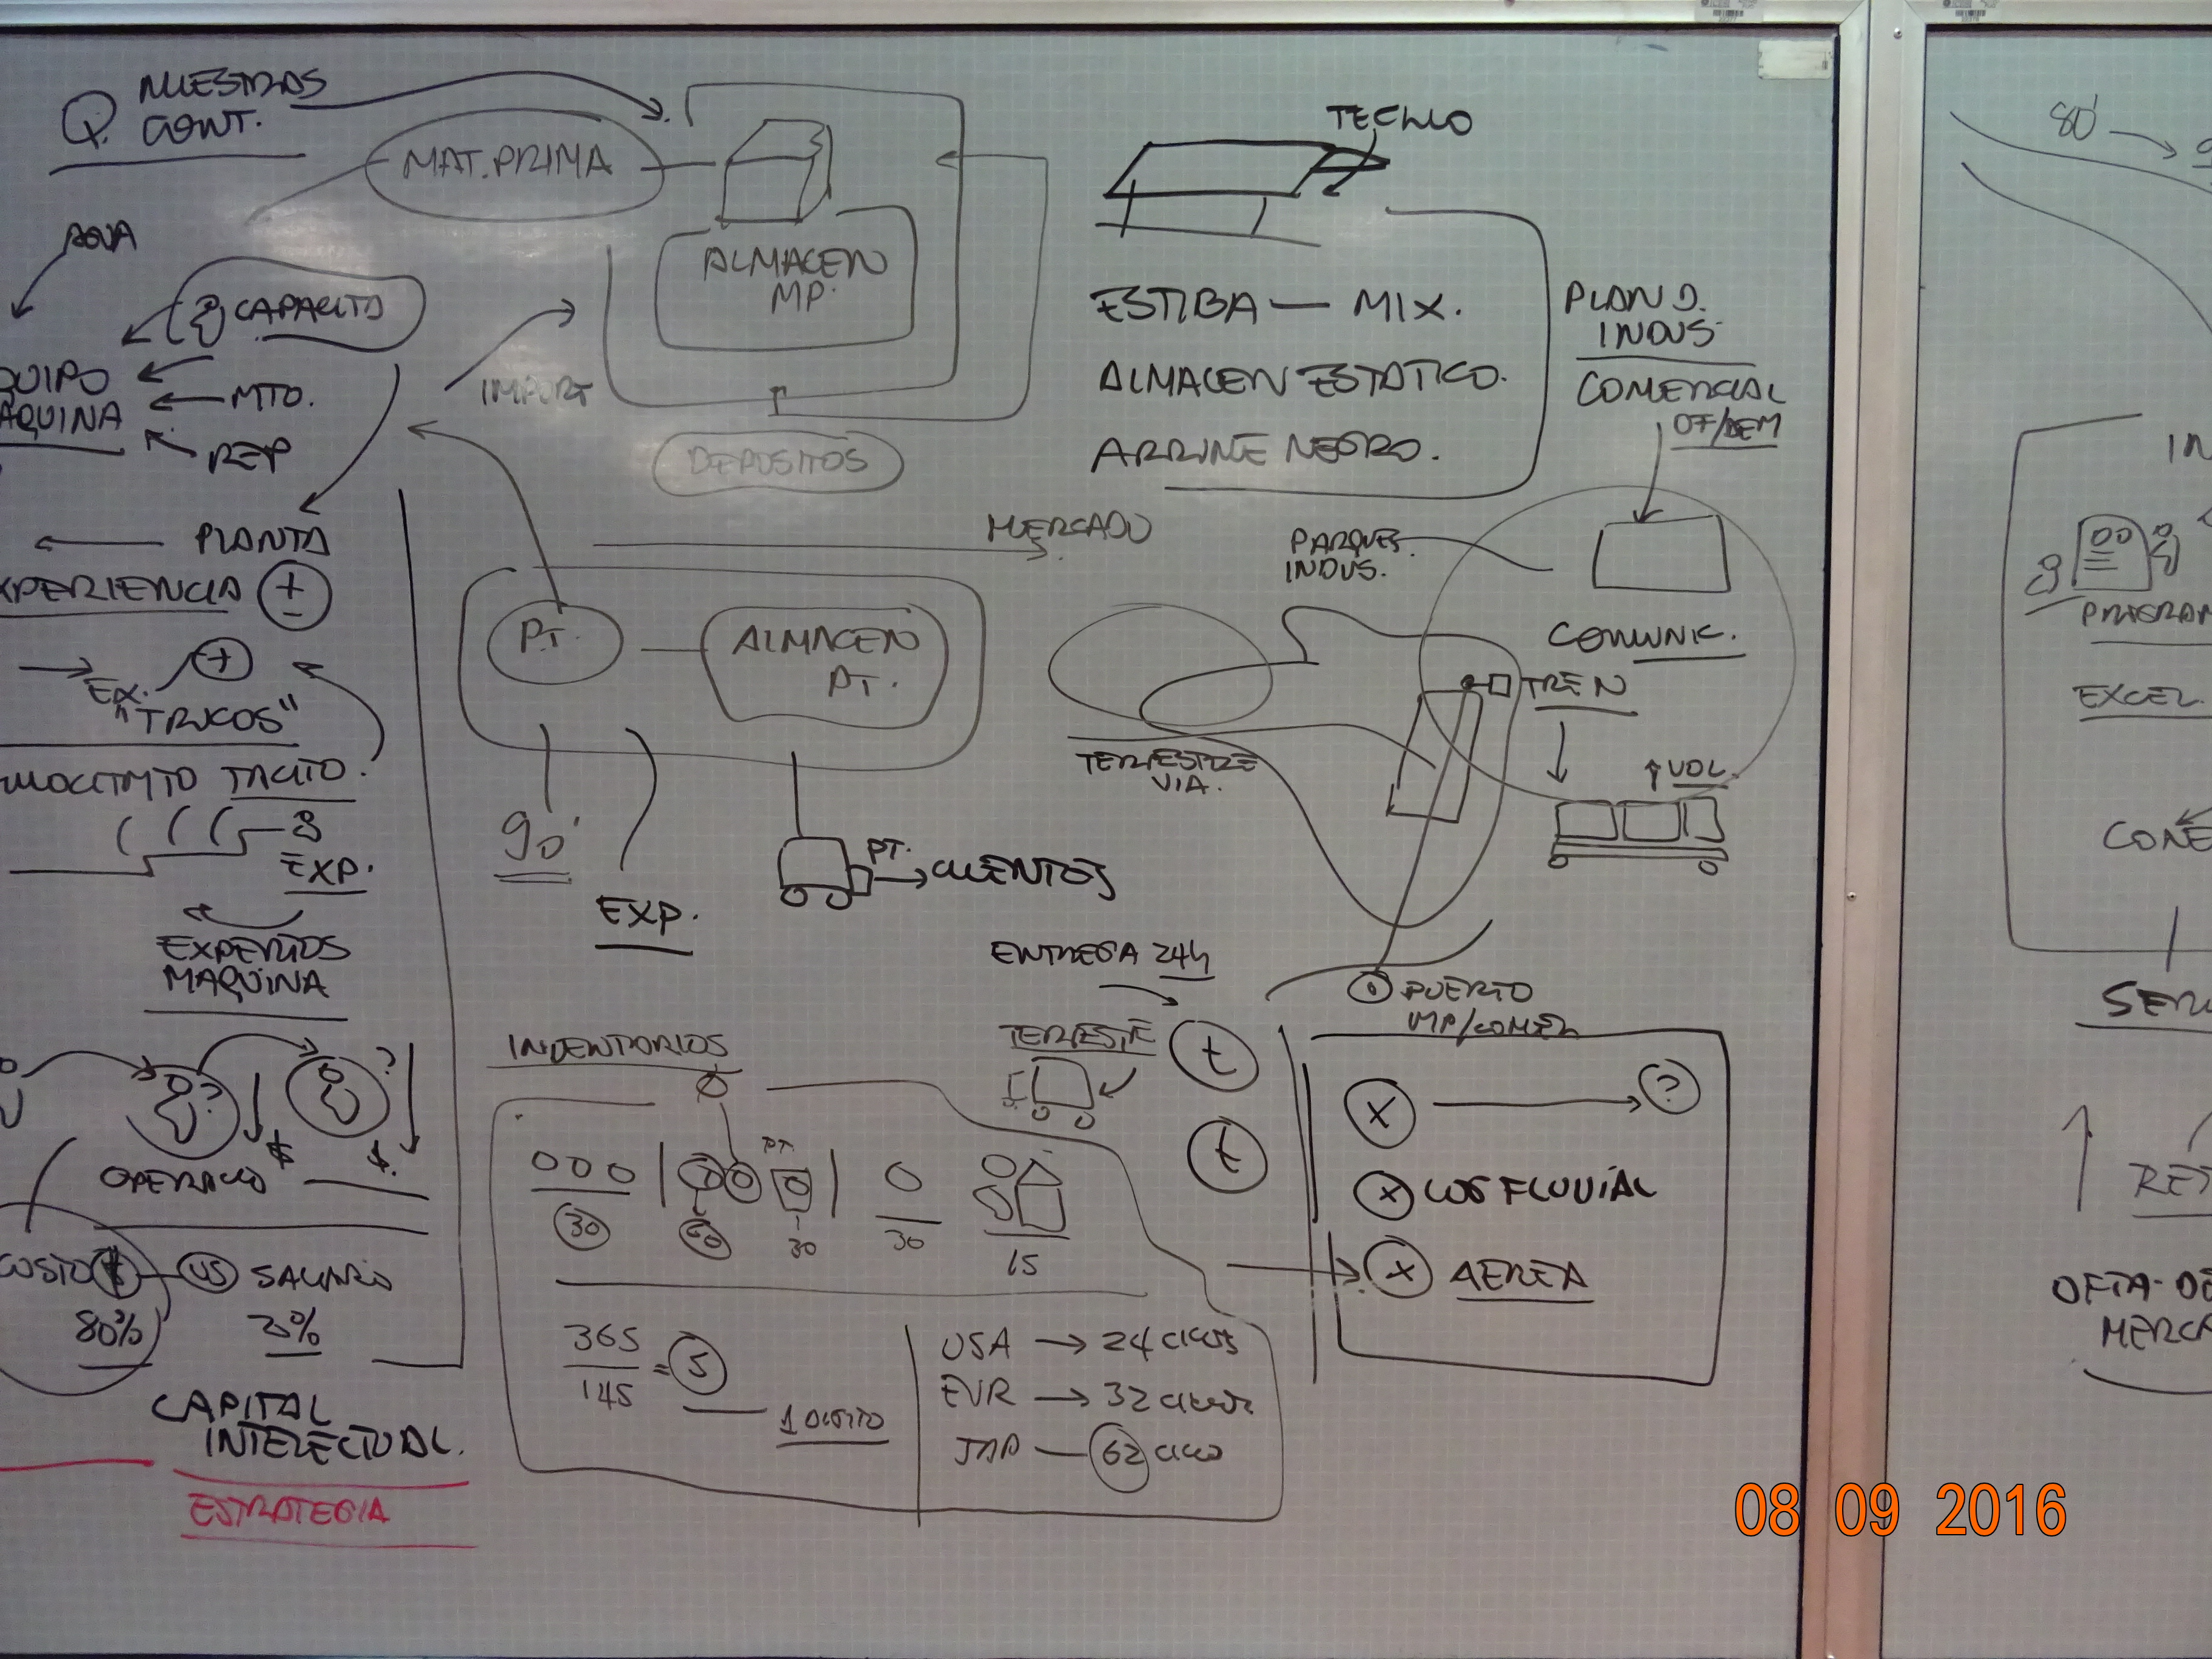 Q. NUESTRAS
CONT.
MAT. PRIMA
ALMACEN
MP.
TECHO
CAPACITA
QUIPO
AQUINA
MTO.
REP
IMPORT
DEPOSITOS
ESTIBA — MIX.
ALMACEN ESTATICO.
ARRUME NEGRO.
PLAN D.
INDUS
COMERCIAL
OF/DEM
PLANTA
XPERIENCIA ±
EX. +
"TRUCOS"
TACITO.
EXP.
EXPERTOS
MAQUINA
MERCADO
P.T.
ALMACEN
PT.
90'
EXP.
PT.
CLIENTES
PARQUES
INDUS.
COMUNIC.
TREN
↑ VOL
TERRESTRE
VIA.
ENTREGA 24h
TERRESTE
t
t
PUERTO
MP/COMER
X → ?
X COS FLUVIAL
X AEREA
? ?
$ $.
OPERACIO
COSTO
80%
US SALARIO
CAPITAL
INTELECTUAL.
ESTRATEGIA
INVENTARIOS
PT
30
30
30
15
365
145
= 5
1 DIGITO
USA → 24 CICLOS
EUR → 32 CICLOS
JAP — 62 CICLO
80'
IN
PROGRAM
EXCEL
CONE
SER
RES
OFTA-DE
MERCA
08 09 2016